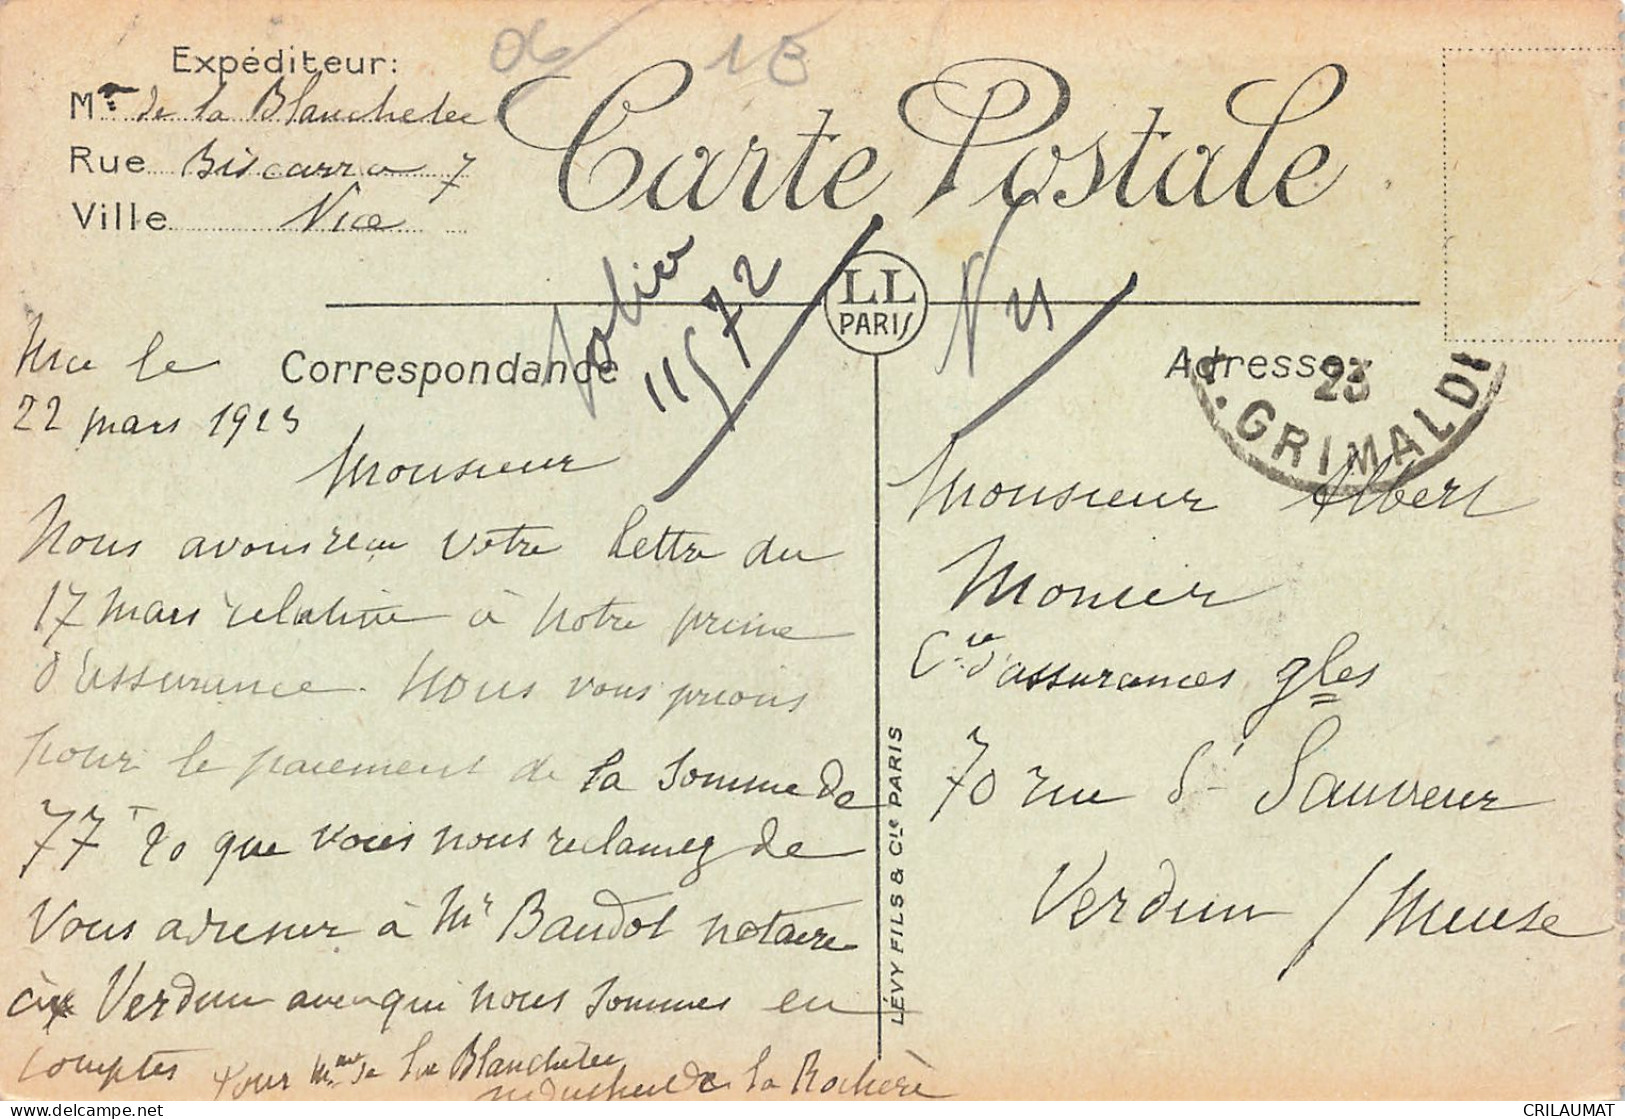 06 1B
Expéditeur:
Mme de la Blanchetee
Rue Biscarra 7
Ville Nice
Carte Postale
LL
PARIS
11572
Correspondance
Adresse
23
GRIMALDI
Nice le
22 mars 1923
Monsieur
Nous avons recu votre lettre du
17 mars relative à notre prime
d'assurance. Nous vous prions
pour le paiement de la somme de
77 f 20 que vous nous reclamez de
vous adresser à Mr Baudot notaire
à Verdun avec qui nous sommes en
comptes
Pour Mme de la Blanchetee
de la Rochère
Monsieur Albert
Monier
Cie d'assurances gles
70 rue St Sauveur
Verdun / Meuse
LÉVY FILS & Cie PARIS
CRILAUMAT